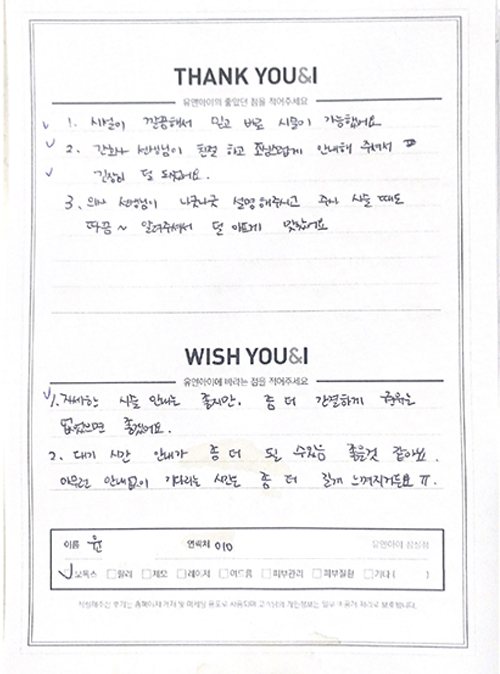 THANK YOU&I
유앤아이의 좋았던 점을 적어주세요
1. 시설이 깔끔해서 믿고 바로 시술이 가능했어요
2. 간호사 선생님이 친절 하고 조심스럽게 안내해 주셔서
긴장이 덜 되었어요.
3. 의사 선생님이 나긋나긋 설명해주시고 주사 시술 때도
따끔~ 알려주셔서 덜 아프게 맞았어요
WISH YOU&I
유앤아이에 바라는 점을 적어주세요
1. 자세한 시술 안내는 좋지만. 좀 더 간결하게
없었으면 좋겠어요.
2. 대기 시간 안내가 좀 더 될 수있음 좋을것 같아요.
아무런 안내없이 기다리는 시간은 좀 더 길게 느껴지거든요 ㅠ.
이름 윤 연락처 010 유앤아이
보톡스 필러 제모 레이저 여드름 피부관리 피부질환 기타 ( )